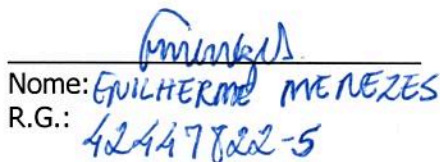 Nome: GUILHERME MENEZES
R.G.: 42447822-5